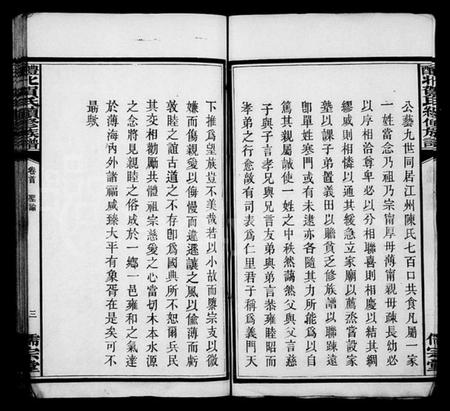 公藝九世同居江州陳氏七百口共食凡屬一家
一姓當念乃祖乃宗甯厚毋薄甯親毋疎長幼必
以序相洽尊卑必以分相聯喜則相慶以結其綢
繆戚則相憐以通其緩急立家廟以薦烝嘗設家
塾以課子弟置義田以贍貧乏修族譜以聯疎遠
卽單姓寒門或有未逮亦各隨其力所能爲以自
篤其親屬誠使一姓之中秩然藹然父與父言慈
子與子言孝兄與兄言友弟與弟言恭雍睦昭而
孝弟之行愈敦有司表爲仁里君子稱爲義門天
下推爲望族豈不美哉若以小故而墮宗支以微
嫌而傷親愛以侮慢而違遜讓之風以偷薄而虧
敦睦之誼古道之不存卽爲國典所不恕爾兵民
其交相勸勵共體祖宗慈愛之心常切木本水源
之念將見親睦之俗成於一鄉一邑雍和之氣達
於薄海內外諸福咸臻太平有象胥在是矣可不
勗歟
卷首
聖諭
三